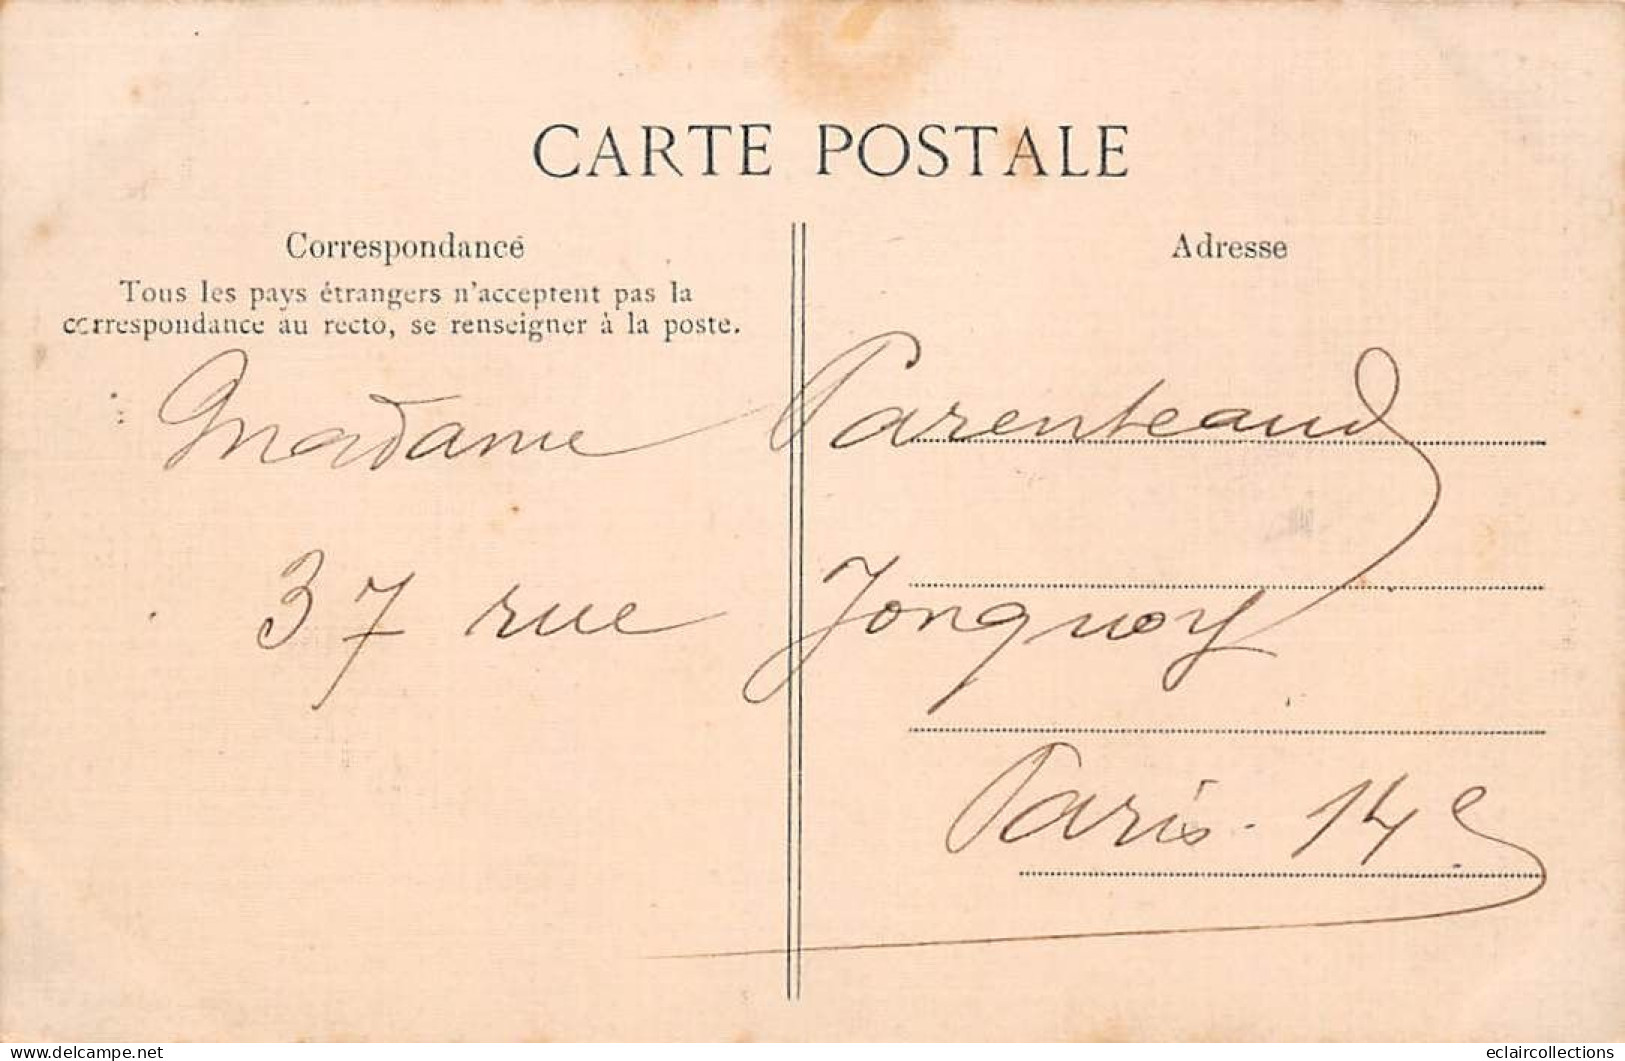 CARTE POSTALE
Correspondance
Tous les pays étrangers n'acceptent pas la
correspondance au recto, se renseigner à la poste.
Adresse
Madame Parenteaud
37 rue Jonquoy
Paris. 14e
delcampe.net
eclaircollections